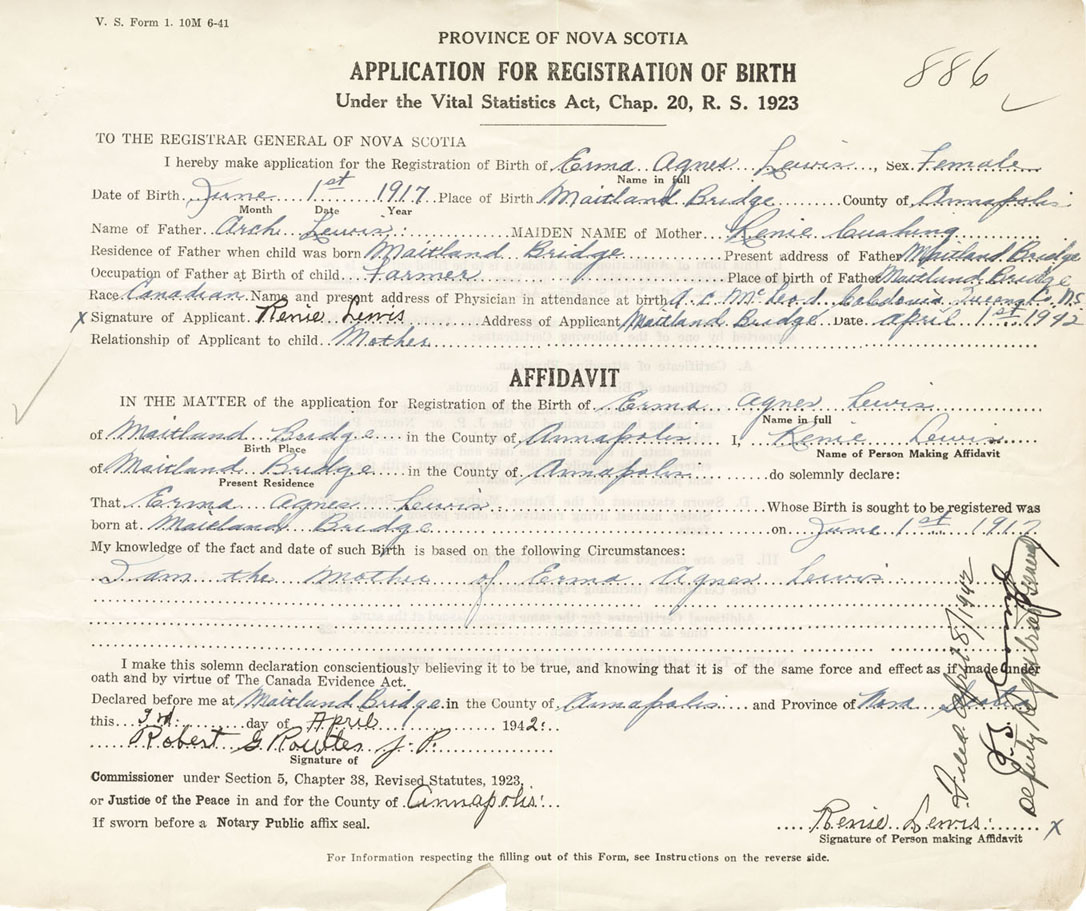 V. S. Form 1. 10M 6-41
PROVINCE OF NOVA SCOTIA
886
APPLICATION FOR REGISTRATION OF BIRTH
Under the Vital Statistics Act, Chap. 20, R. S. 1923
TO THE REGISTRAR GENERAL OF NOVA SCOTIA
I hereby make application for the Registration of Birth of Erma Agnes Lewis, Sex Female
Name in full
Date of Birth June 1st 1917 Place of Birth Maitland Bridge County of Annapolis
Month Date Year
Name of Father Arch Lewis MAIDEN NAME of Mother Renie Cushing
Residence of Father when child was born Maitland Bridge Present address of Father Maitland Bridge
Occupation of Father at Birth of child Farmer Place of birth of Father Maitland Bridge
Race Canadian Name and present address of Physician in attendance at birth A. C. McLeod Caledonia N.S
x Signature of Applicant Renie Lewis Address of Applicant Maitland Bridge Date April 1st 1942
Relationship of Applicant to child Mother
AFFIDAVIT
IN THE MATTER of the application for Registration of the Birth of Erma Agnes Lewis
Name in full
of Maitland Bridge in the County of Annapolis I, Renie Lewis
Birth Place Name of Person Making Affidavit
of Maitland Bridge in the County of Annapolis do solemnly declare:
Present Residence
That Erma Agnes Lewis Whose Birth is sought to be registered was
born at Maitland Bridge on June 1st 1917
My knowledge of the fact and date of such Birth is based on the following Circumstances:
I am the Mother of Erma Agnes Lewis
I make this solemn declaration conscientiously believing it to be true, and knowing that it is of the same force and effect as if made under
oath and by virtue of The Canada Evidence Act.
Declared before me at Maitland Bridge in the County of Annapolis and Province of Nova Scotia
this 3rd day of April 1942
Robert G. J. P.
Signature of
Commissioner under Section 5, Chapter 38, Revised Statutes, 1923,
or Justice of the Peace in and for the County of Annapolis
If sworn before a Notary Public affix seal.
Renie Lewis x
Signature of Person making Affidavit
For Information respecting the filling out of this Form, see Instructions on the reverse side.
Filed April 8/1942
Deputy Registrar General